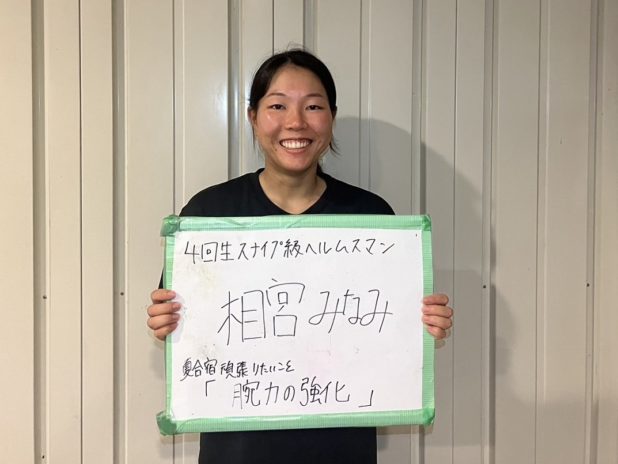 4回生スナイプ級ヘルムスマン
相宮みなみ
夏合宿頑張りたいこと
「腕力の強化」